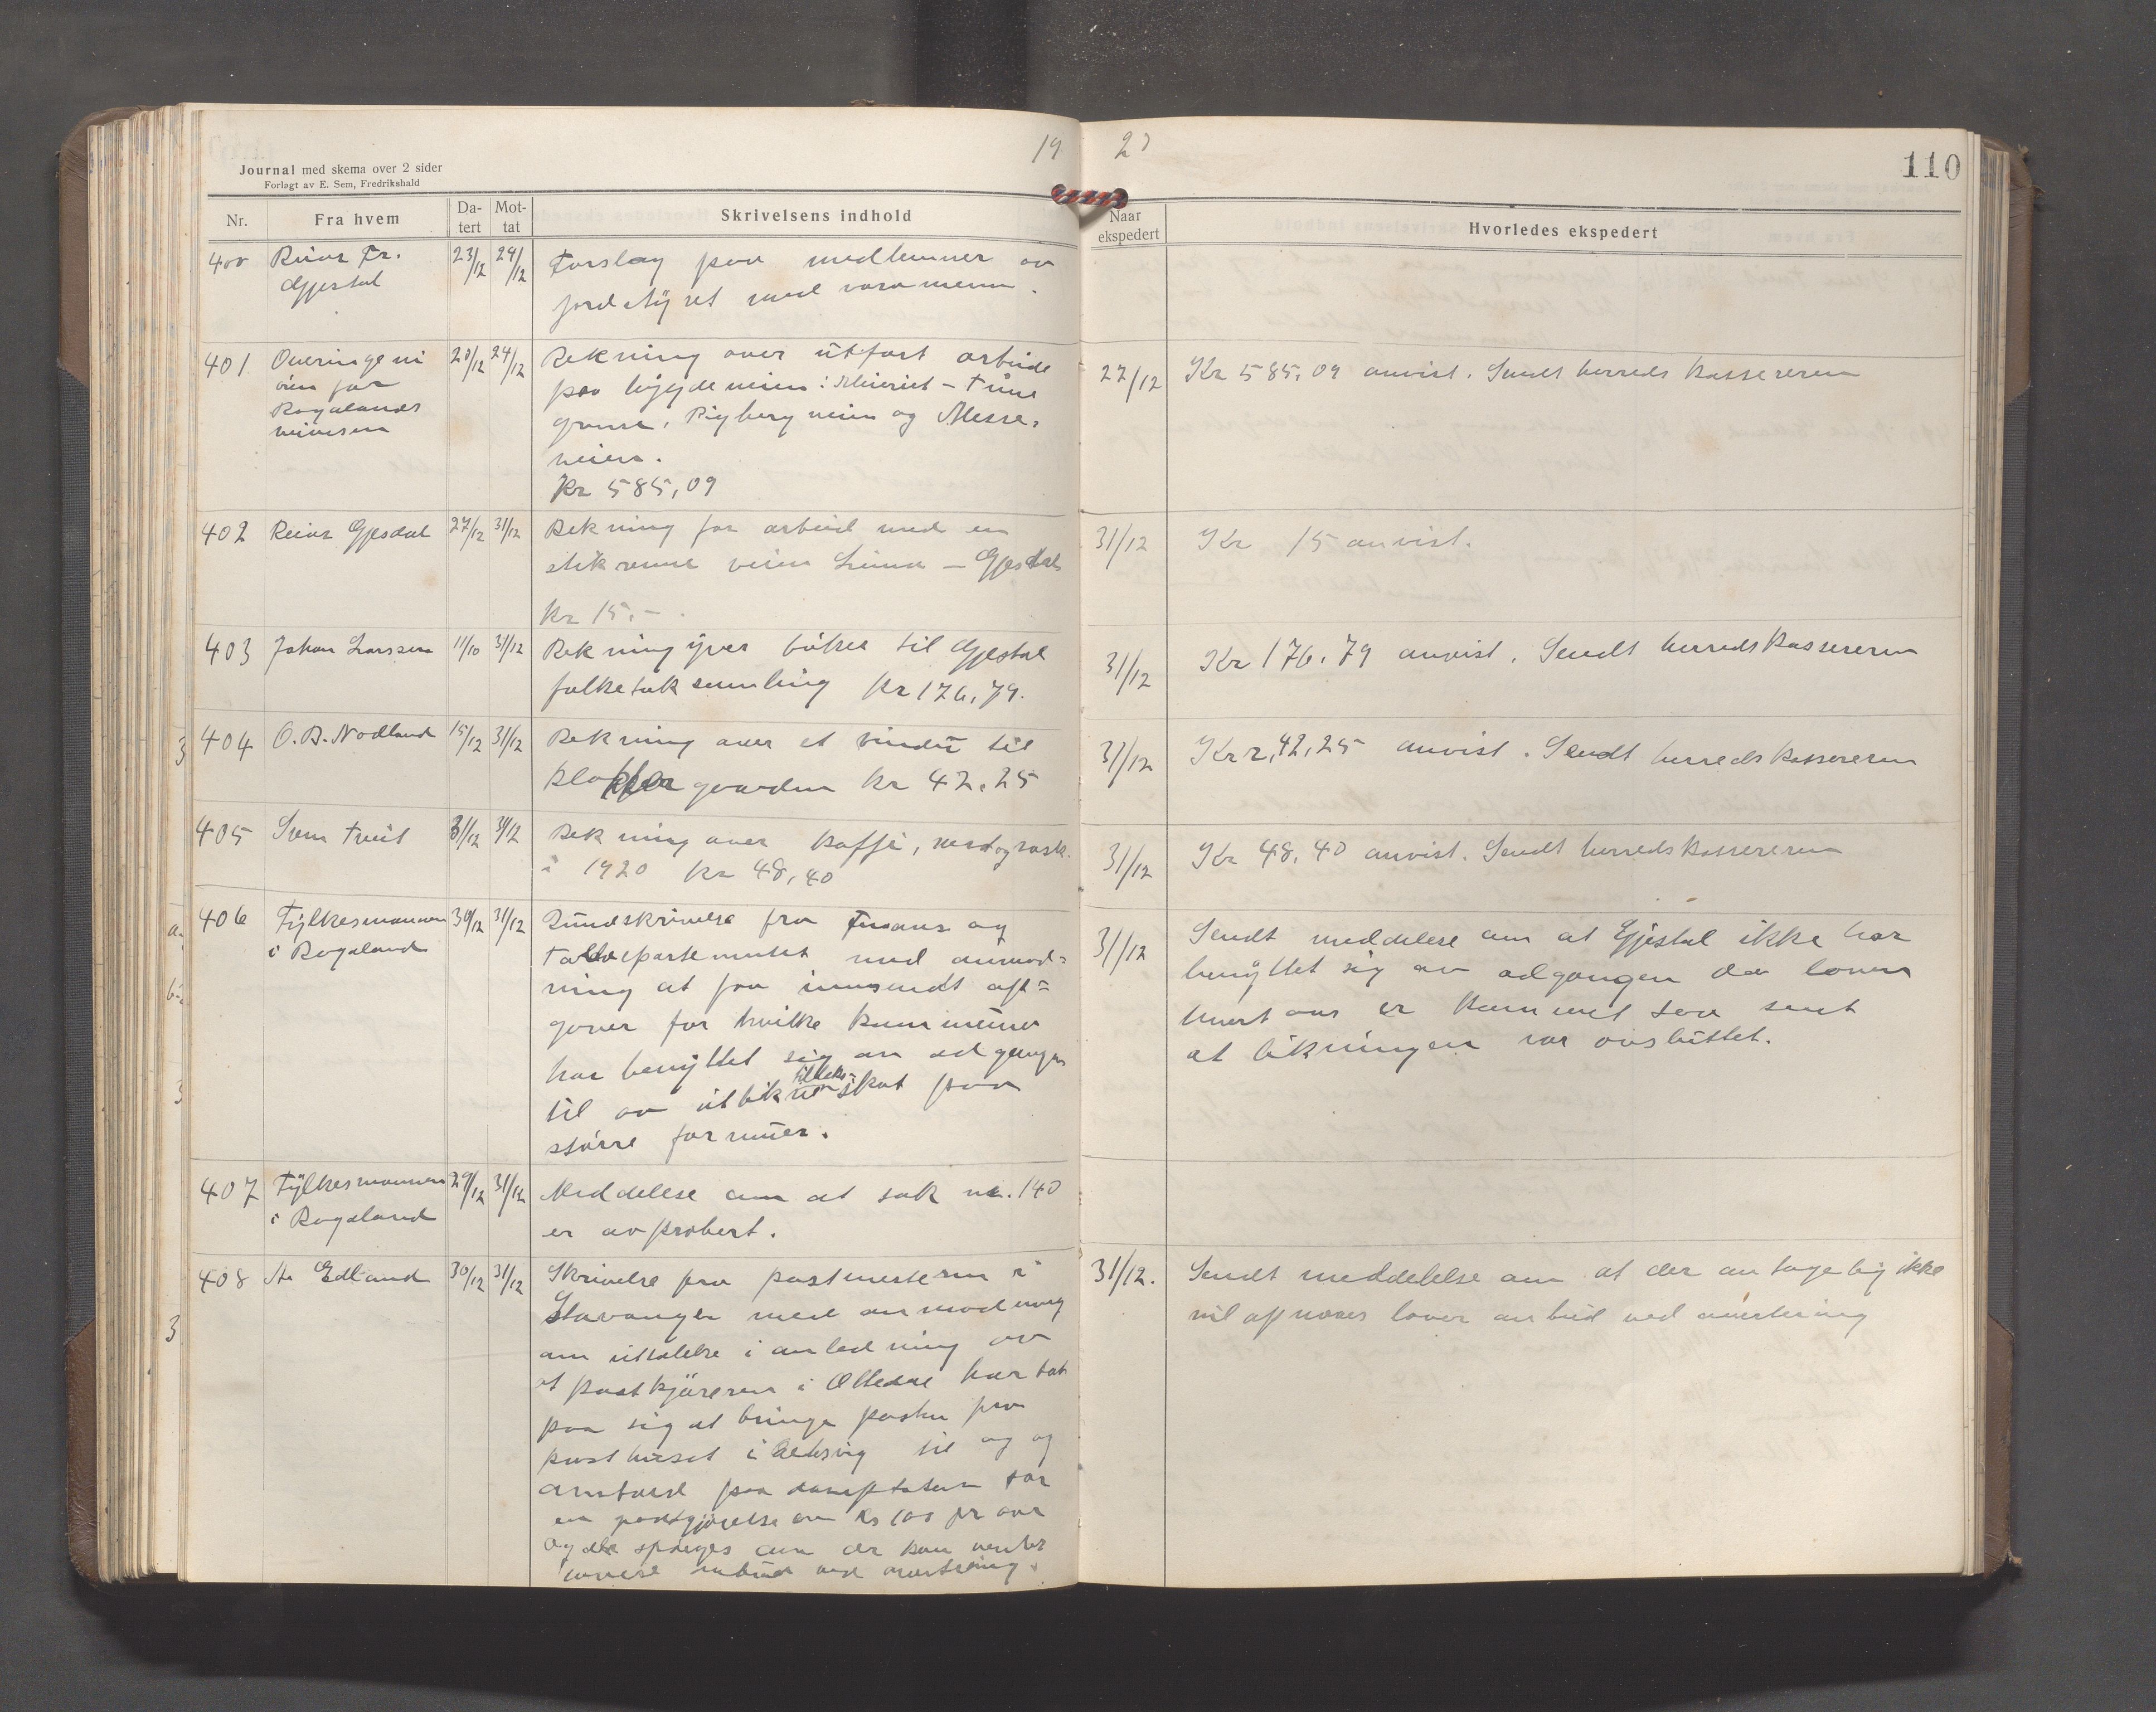 19 20
110
Journal med skema over 2 sider
Forlagt av E. Sem, Fredrikshald
Nr. Fra hvem Da-tert Mot-tat Skrivelsens indhold Naar ekspedert Hvorledes ekspedert
400 Reiar Fr. 23/12 24/12 Forslag paa medlemmer av
Gjestal jordstyret med varamenn.
401 Overingeni 20/12 24/12 Rekning over utført arbeide 27/12 Kr 585,09 anvist. Sendt herredskassereren
øren for paa bygdeveien: Meieriet - Time
Rogalands grense, Rigberg veien og Messe-
veivesen veien.
Kr 585,09
402 Reiar Gjesdal 27/12 31/12 Rekning for arbeid med en 31/12 Kr 15 anvist.
stikrenne veien Lima - Gjesdal
Kr 15,-
403 Johan Larssen 11/10 31/12 Rekning yver bøker til Gjestal 31/12 Kr 176,79 anvist. Sendt herredskassereren
folkeboksamling kr 176,79.
404 O. B. Nodland 15/12 31/12 Rekning over et vindu til 31/12 Kr 42,25 anvist. Sendt herredskassereren
klokkergaarden kr 42,25
405 Svein Tveit 31/12 31/12 Rekning over kaffe, ved og vask 31/12 Kr 48,40 anvist. Sendt herredskassereren
i 1920 kr 48,40
406 Fylkesmannen 30/12 31/12 Rundskrivelse fra Finans og 31/12 Sendt meddelese om at Gjestal ikke har
i Rogaland Tolddepartementet med anmod- benyttet sig av adgangen da loven
ning at faa innsendt opp- herom er kommet saa sent
gaver for hvilke kommuner at likningen var avsluttet.
har benyttet sig av adgangen
til av utlikne tilleks-skat paa
større formuer.
407 Fylkesmannen 29/12 31/12 Meddelese om at sak nr. 140
i Rogaland er approbert.
408 A. Edland 30/12 31/12 Skrivelse fra postmesteren i 31/12. Sendt meddelelse om at der antagelig ikke
Stavanger med anmodning vil opnaaes laver anbud ved avertering
om uttalelse i anledning av
at postkjøreren i Oltedal har tat
paa sig at bringe posten fra
posthuset i til og og
paa for
en godtgjørelse av kr 100 pr aar
og det spørges om der kan ventes
lavere anbud ved avertering.